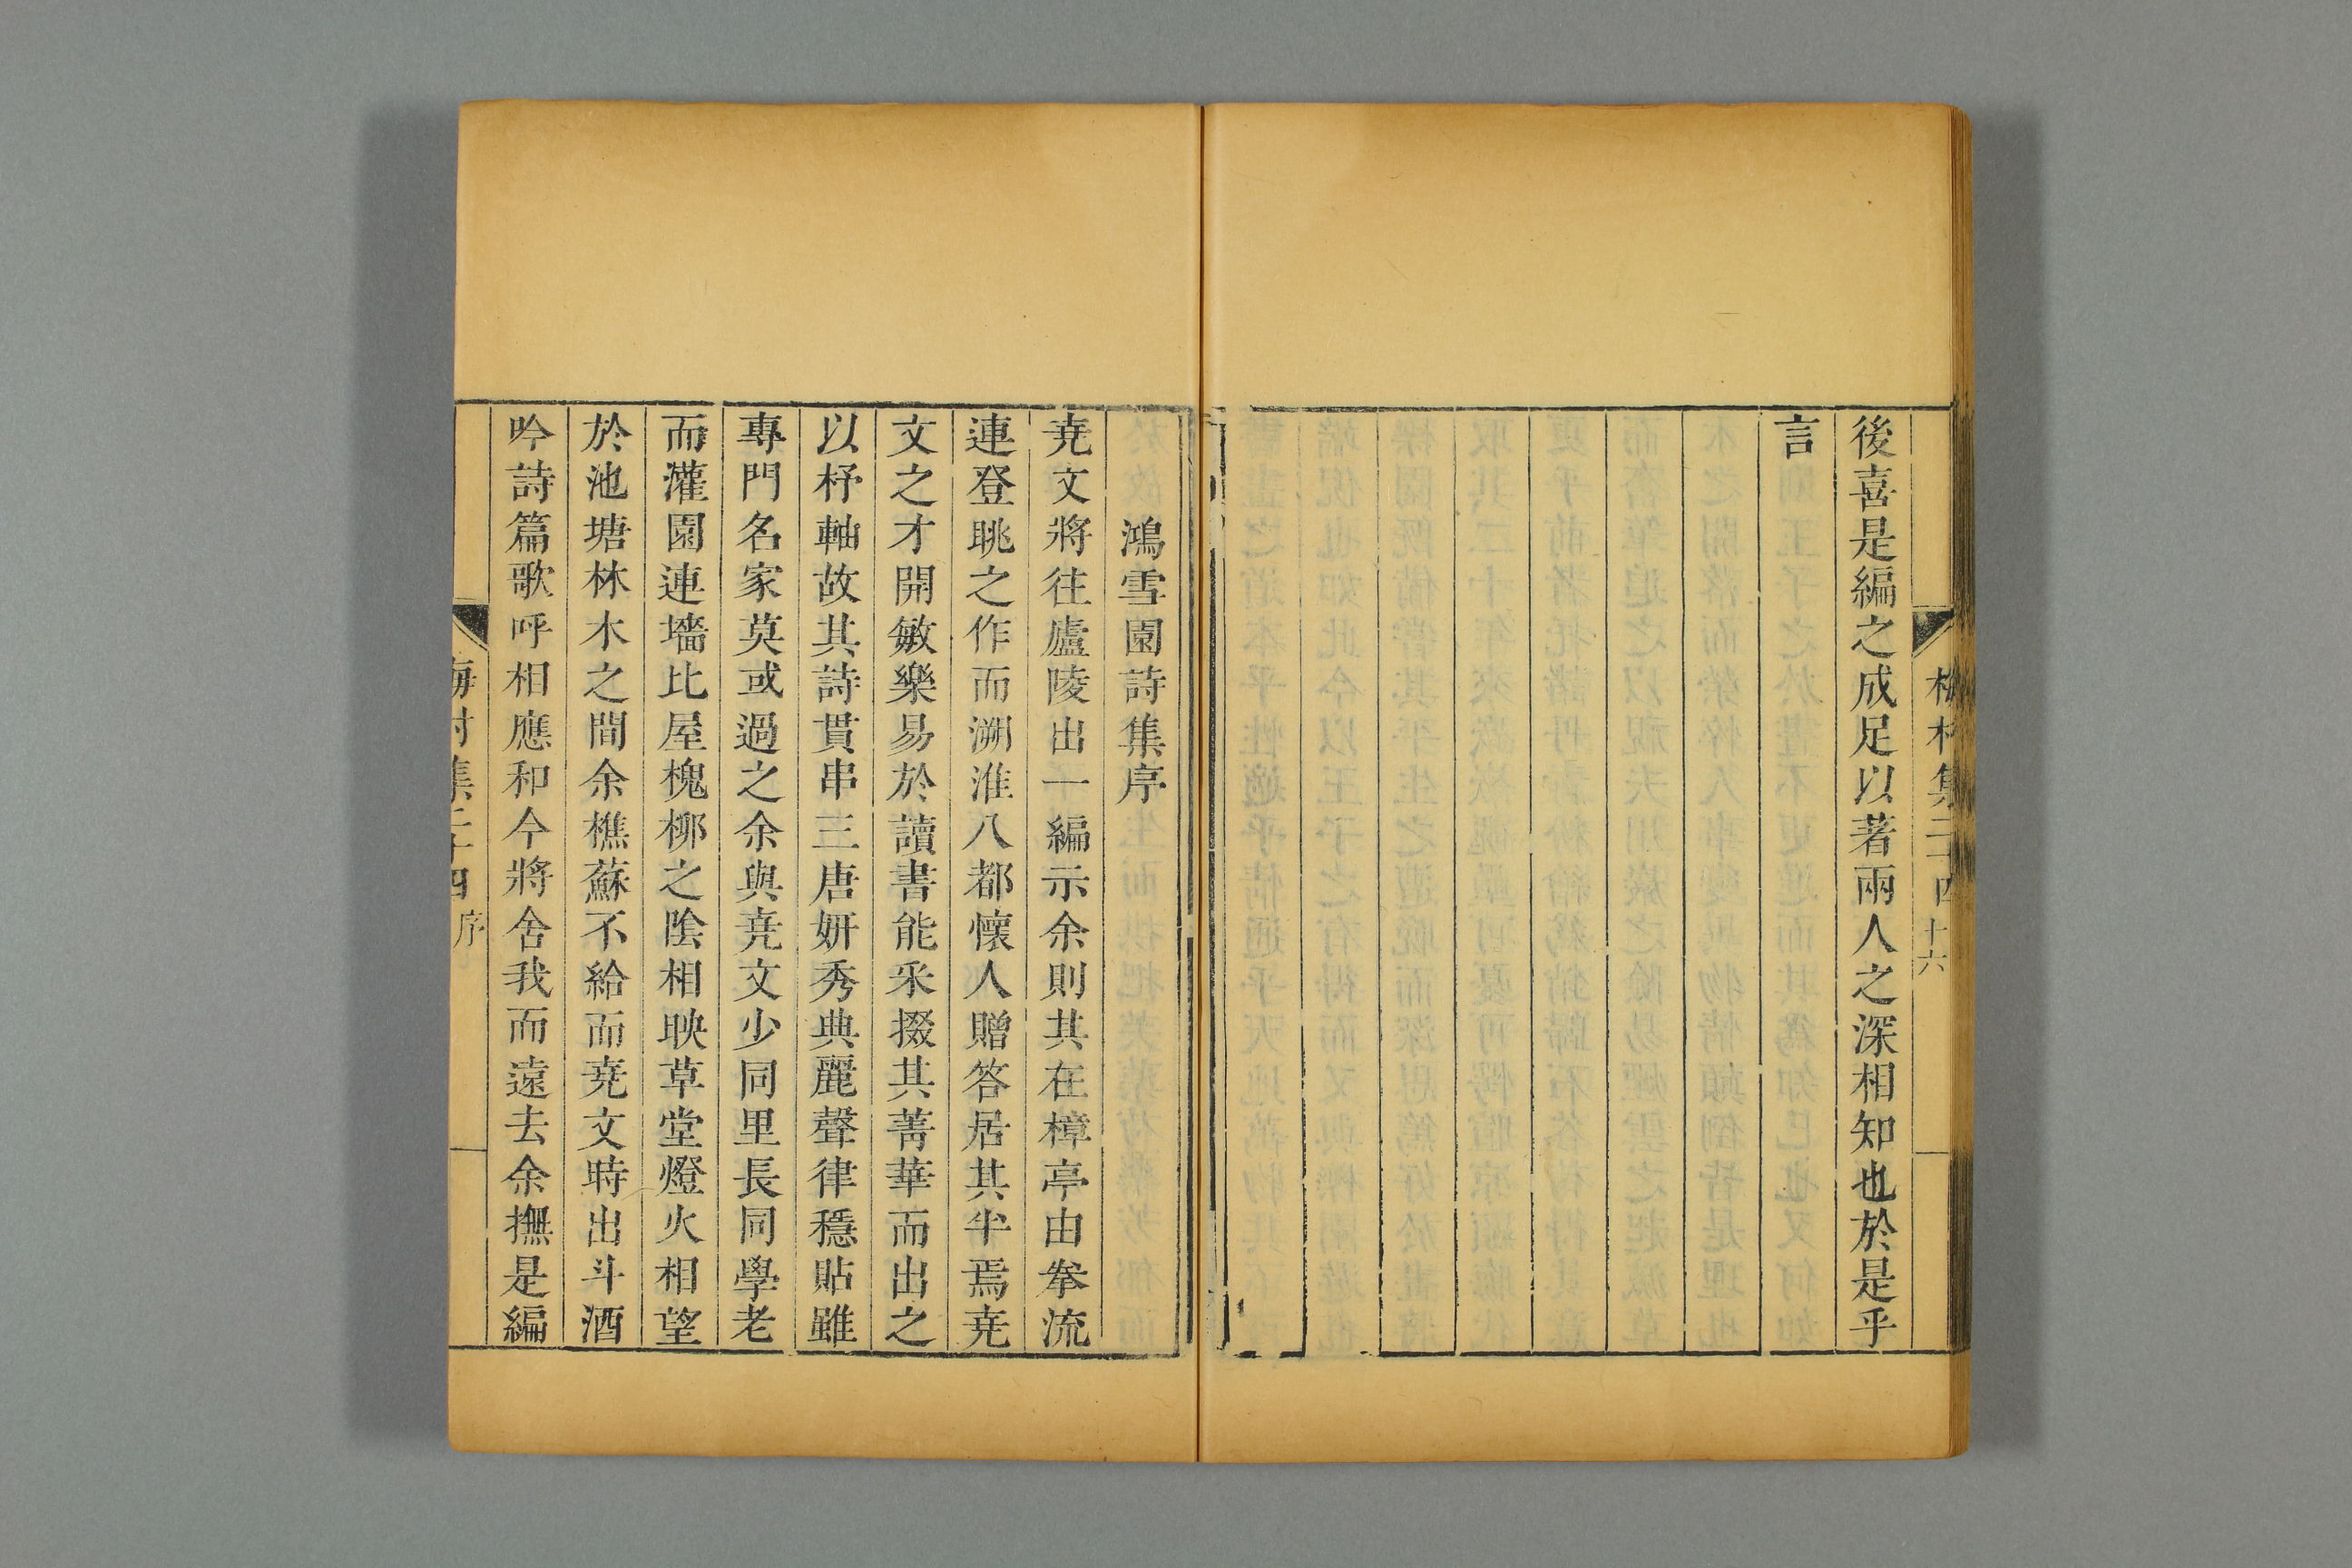 梅村集二十四 十六
後喜是編之成足以著兩人之深相知也於是乎
言
鴻雪園詩集序
堯文將往廬陵出一編示余則其在樟亭由拳流
連登眺之作而溯淮八都懷人贈答居其半焉堯
文之才開敏樂易於讀書能采掇其菁華而出之
以杼軸故其詩貫串三唐妍秀典麗聲律穩貼雖
專門名家莫或過之余與堯文少同里長同學老
而灌園連墻比屋槐柳之陰相映草堂燈火相望
於池塘林木之間余樵蘇不給而堯文時出斗酒
吟詩篇歌呼相應和今將舍我而遠去余撫是編
梅村集二十四 序